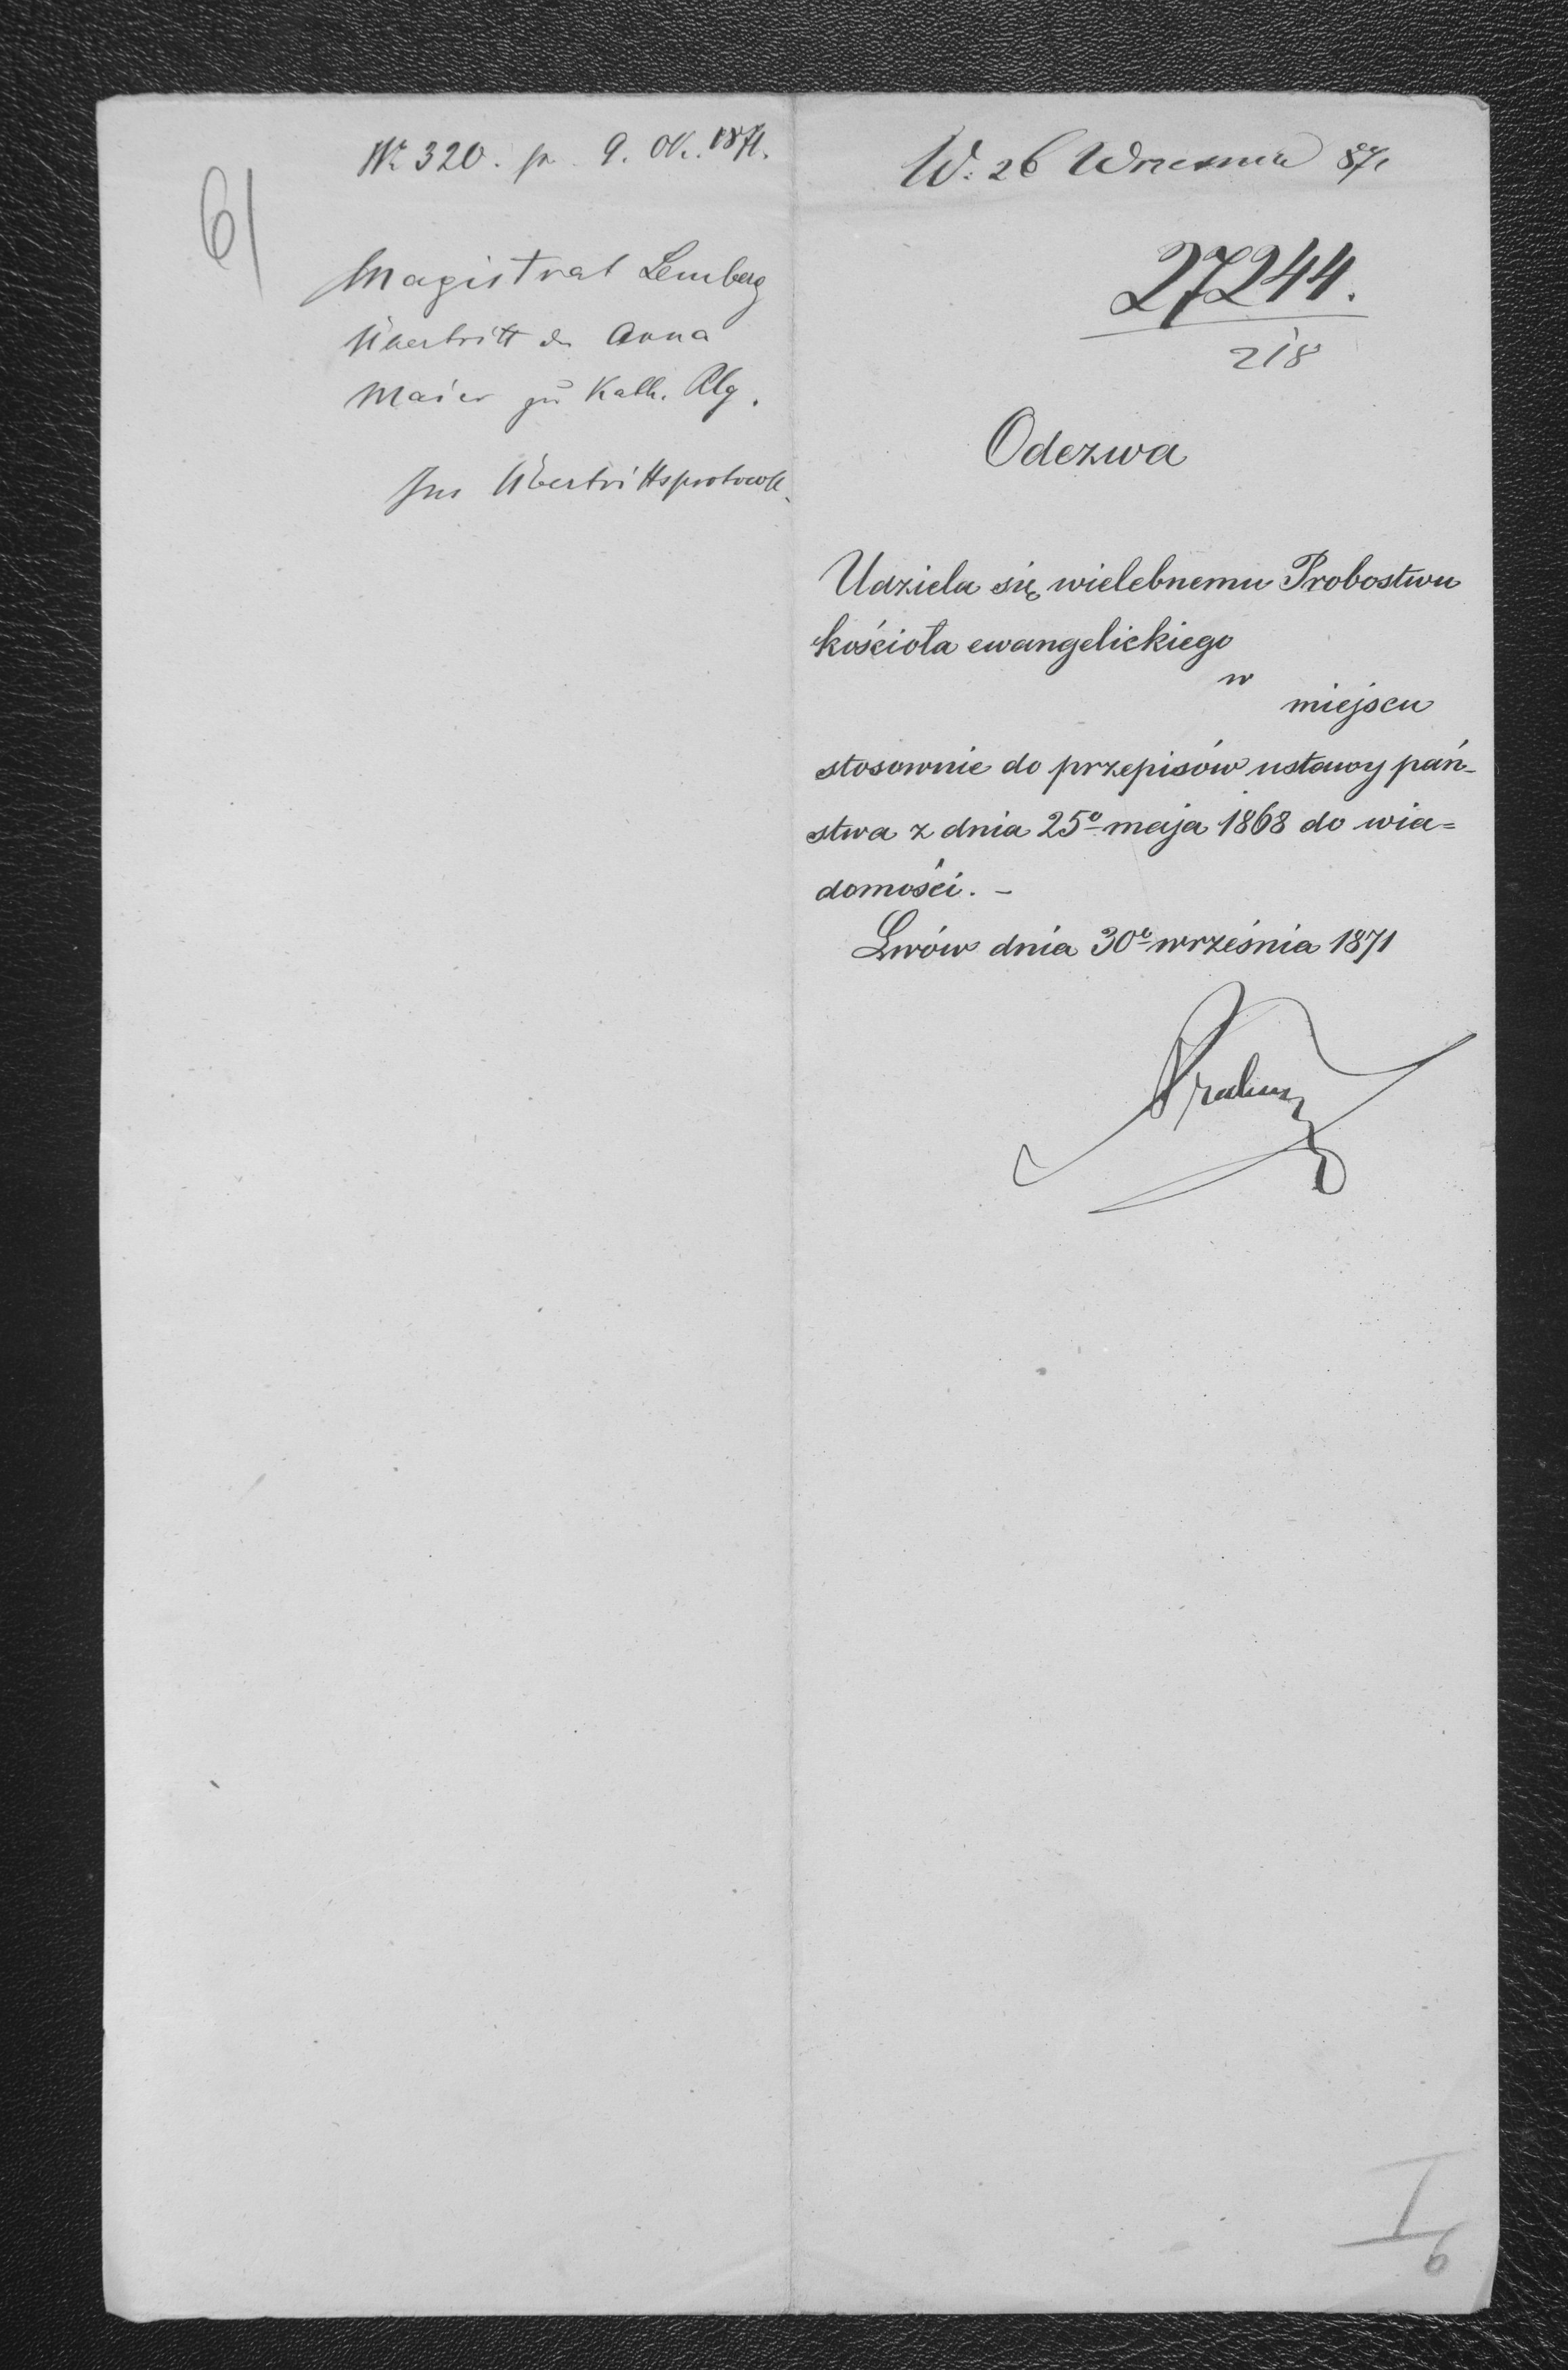 61
Nr 320. pr. 9. Ok. 1871.
Magistrat Lemberg
Übertritt der Anna
Maier zur Kath. Rlg.
Ins Übertrittsprotocoll.
W: 26 Września 871
27244.
218
Odezwa
Udziela się wielebnemu Probostwu
kościoła ewangelickiego
w miejscu
stosownie do przepisów ustawy pań-
stwa z dnia 25o maja 1868 do wia=
domości. –
Lwów dnia 30o września 1871
I
6